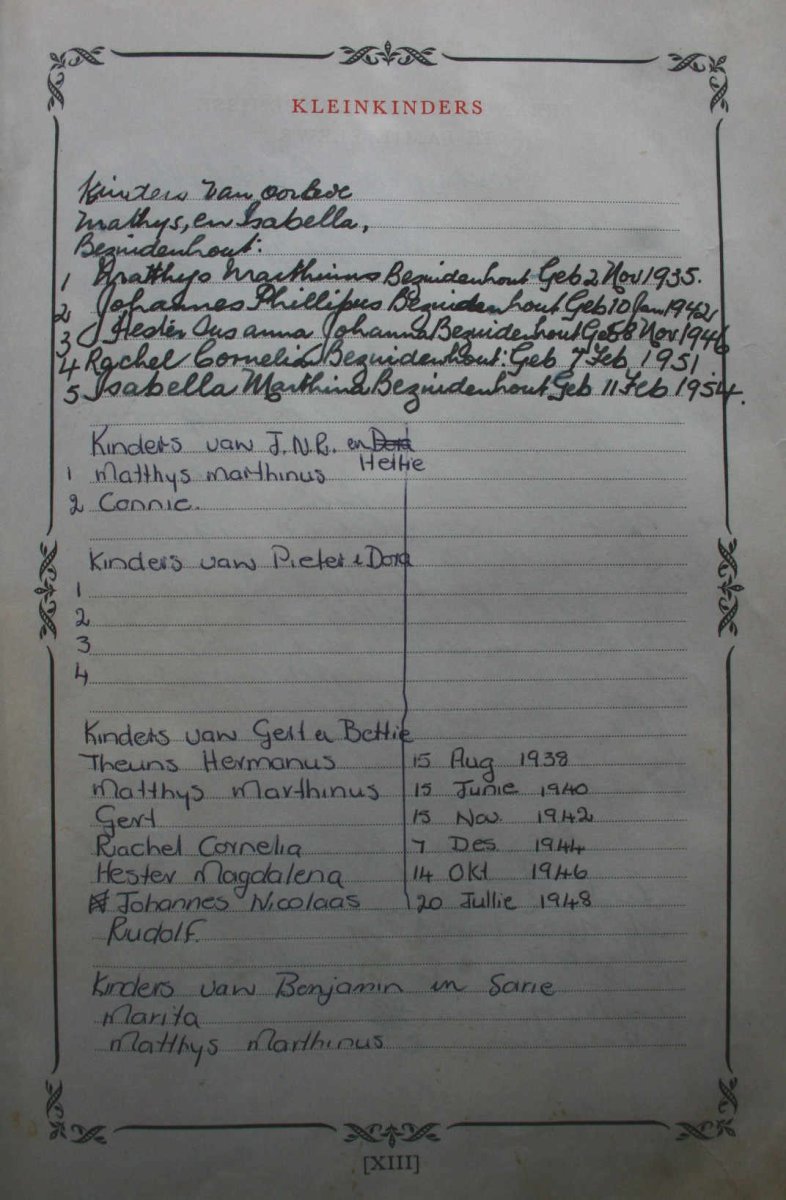 KLEINKINDERS
Kinders van oorlede
Mathys, en Isabella,
Bezuidenhout:
1 Matthys Marthinus Bezuidenhout Geb 2 Nov 1935.
2 Johannes Phillipus Bezuidenhout Geb 10 Jan 1942
3 Hester Susanna Johanna Bezuidenhout Geb 8 Nov 1946
4 Rachel Cornelia Bezuidenhout: Geb 7 Feb 1951
5 Isabella Marthina Bezuidenhout Geb 11 Feb 1954.
Kinders van J.N.R. en Dora
Hettie
1 Matthys Marthinus
2 Connie.
Kinders van Pieter & Dora
1
2
3
4
Kinders van Gert en Bettie
Theuns Hermanus 15 Aug 1938
Matthys Marthinus 15 Junie 1940
Gert 15 Nov. 1942
Rachel Cornelia 7 Des 1944
Hester Magdalena 14 Okt 1946
Johannes Nicolaas 20 Jullie 1948
Rudolf.
Kinders van Benjamin en Sarie
Marita
Matthys Marthinus
[XIII]